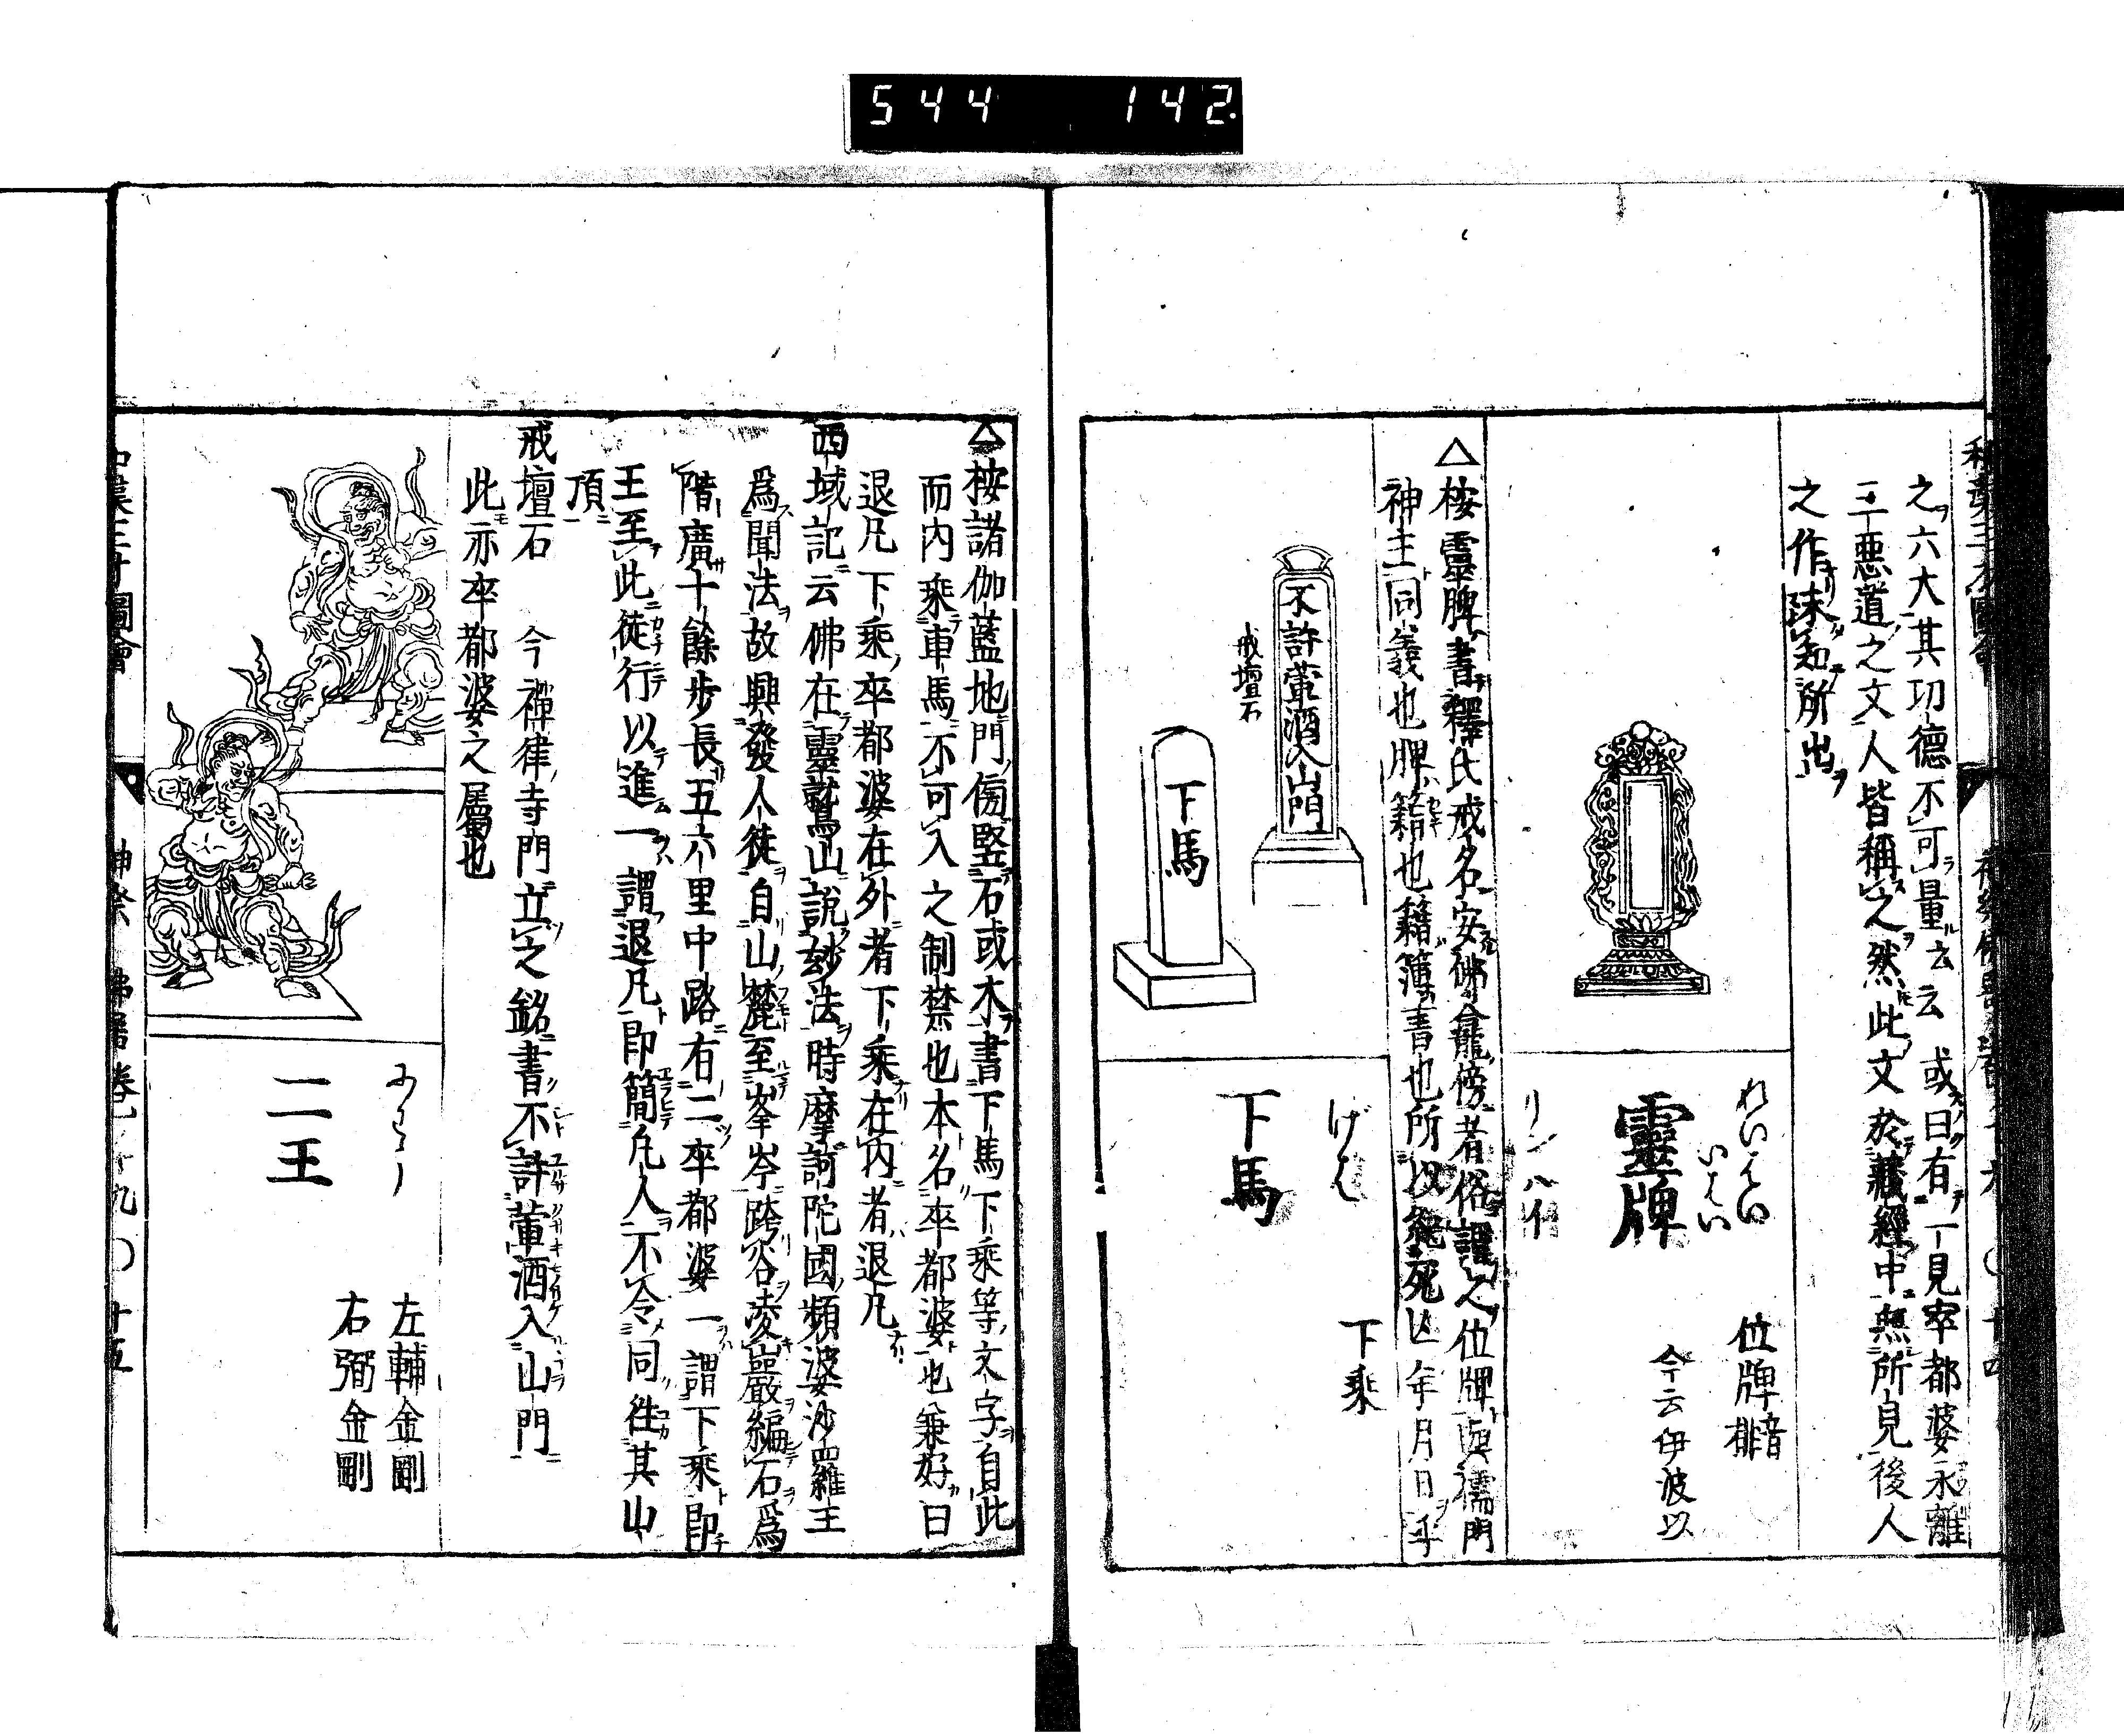 544 142
之六大其功德不可量云云或曰有一見窣都婆永離
三惡道之文人皆稱之然此文於藏經中無所見後人
之作未知所出
れいはい
いはい
靈牌
リンパイ
位牌 音排
今云伊波以
△桉靈牌書釋氏戒名安佛龕傍者俗謂之位牌與儒門
神主同義也牌籍也籍簿書也所以紀死亡年月日乎
不許葷酒入山門
戒壇石
下馬
げば
下馬
下乗
△桉諸伽藍地門傍竪石或木書下馬下乗等文字自此
而内乗車馬不可入之制禁也本名卒都婆也兼好曰
退凡下乗卒都婆在外者下乗在内者退凡
西域記云佛在靈鷲山說妙法時摩訶陀國頻婆沙羅王
爲聞法故興發人徒自山麓至峯岑跨谷凌巖編石爲
階廣十餘步長五六里中路有二卒都婆一謂下乗即
王至此徒行以進一謂退凡即簡凡人不令同徃其山
頂
戒壇石 今禪律寺門立之銘書不許葷酒入山門
此亦卒都婆之屬也
二王
左輔金剛
右弼金剛
和漢三才圖會
神祭 佛器 卷十九〇十五